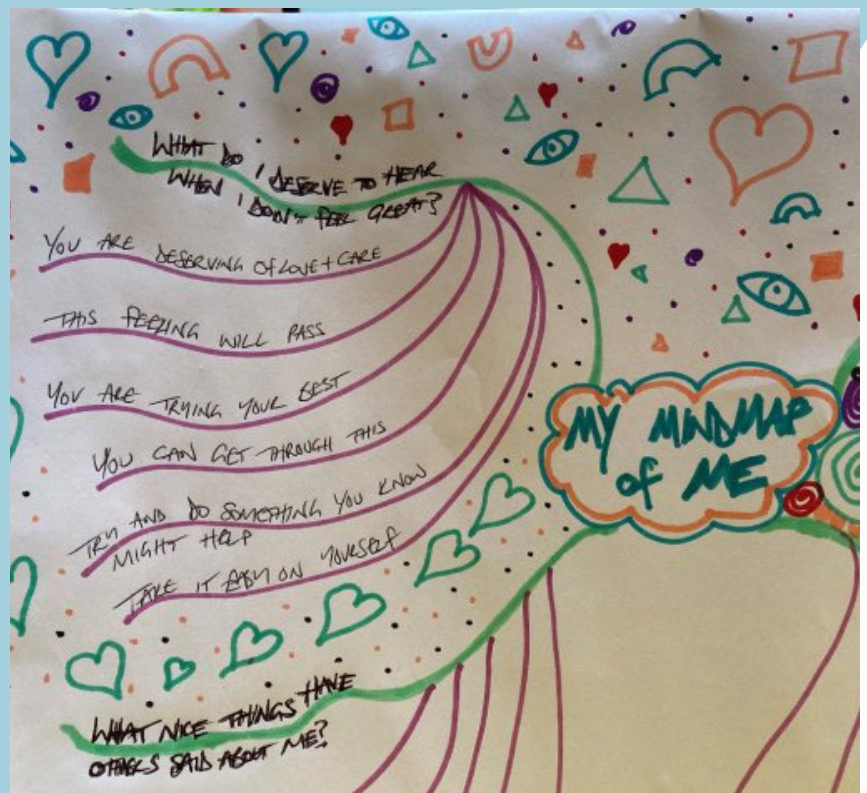 WHAT DO I DESERVE TO HEAR
WHEN I DON'T FEEL GREAT?
YOU ARE DESERVING OF LOVE + CARE
THIS FEELING WILL PASS
YOU ARE TRYING YOUR BEST
YOU CAN GET THROUGH THIS
TRY AND DO SOMETHING YOU KNOW
MIGHT HELP
TAKE IT EASY ON YOURSELF
MY MINDMAP
of ME
WHAT NICE THINGS HAVE
OTHERS SAID ABOUT ME?